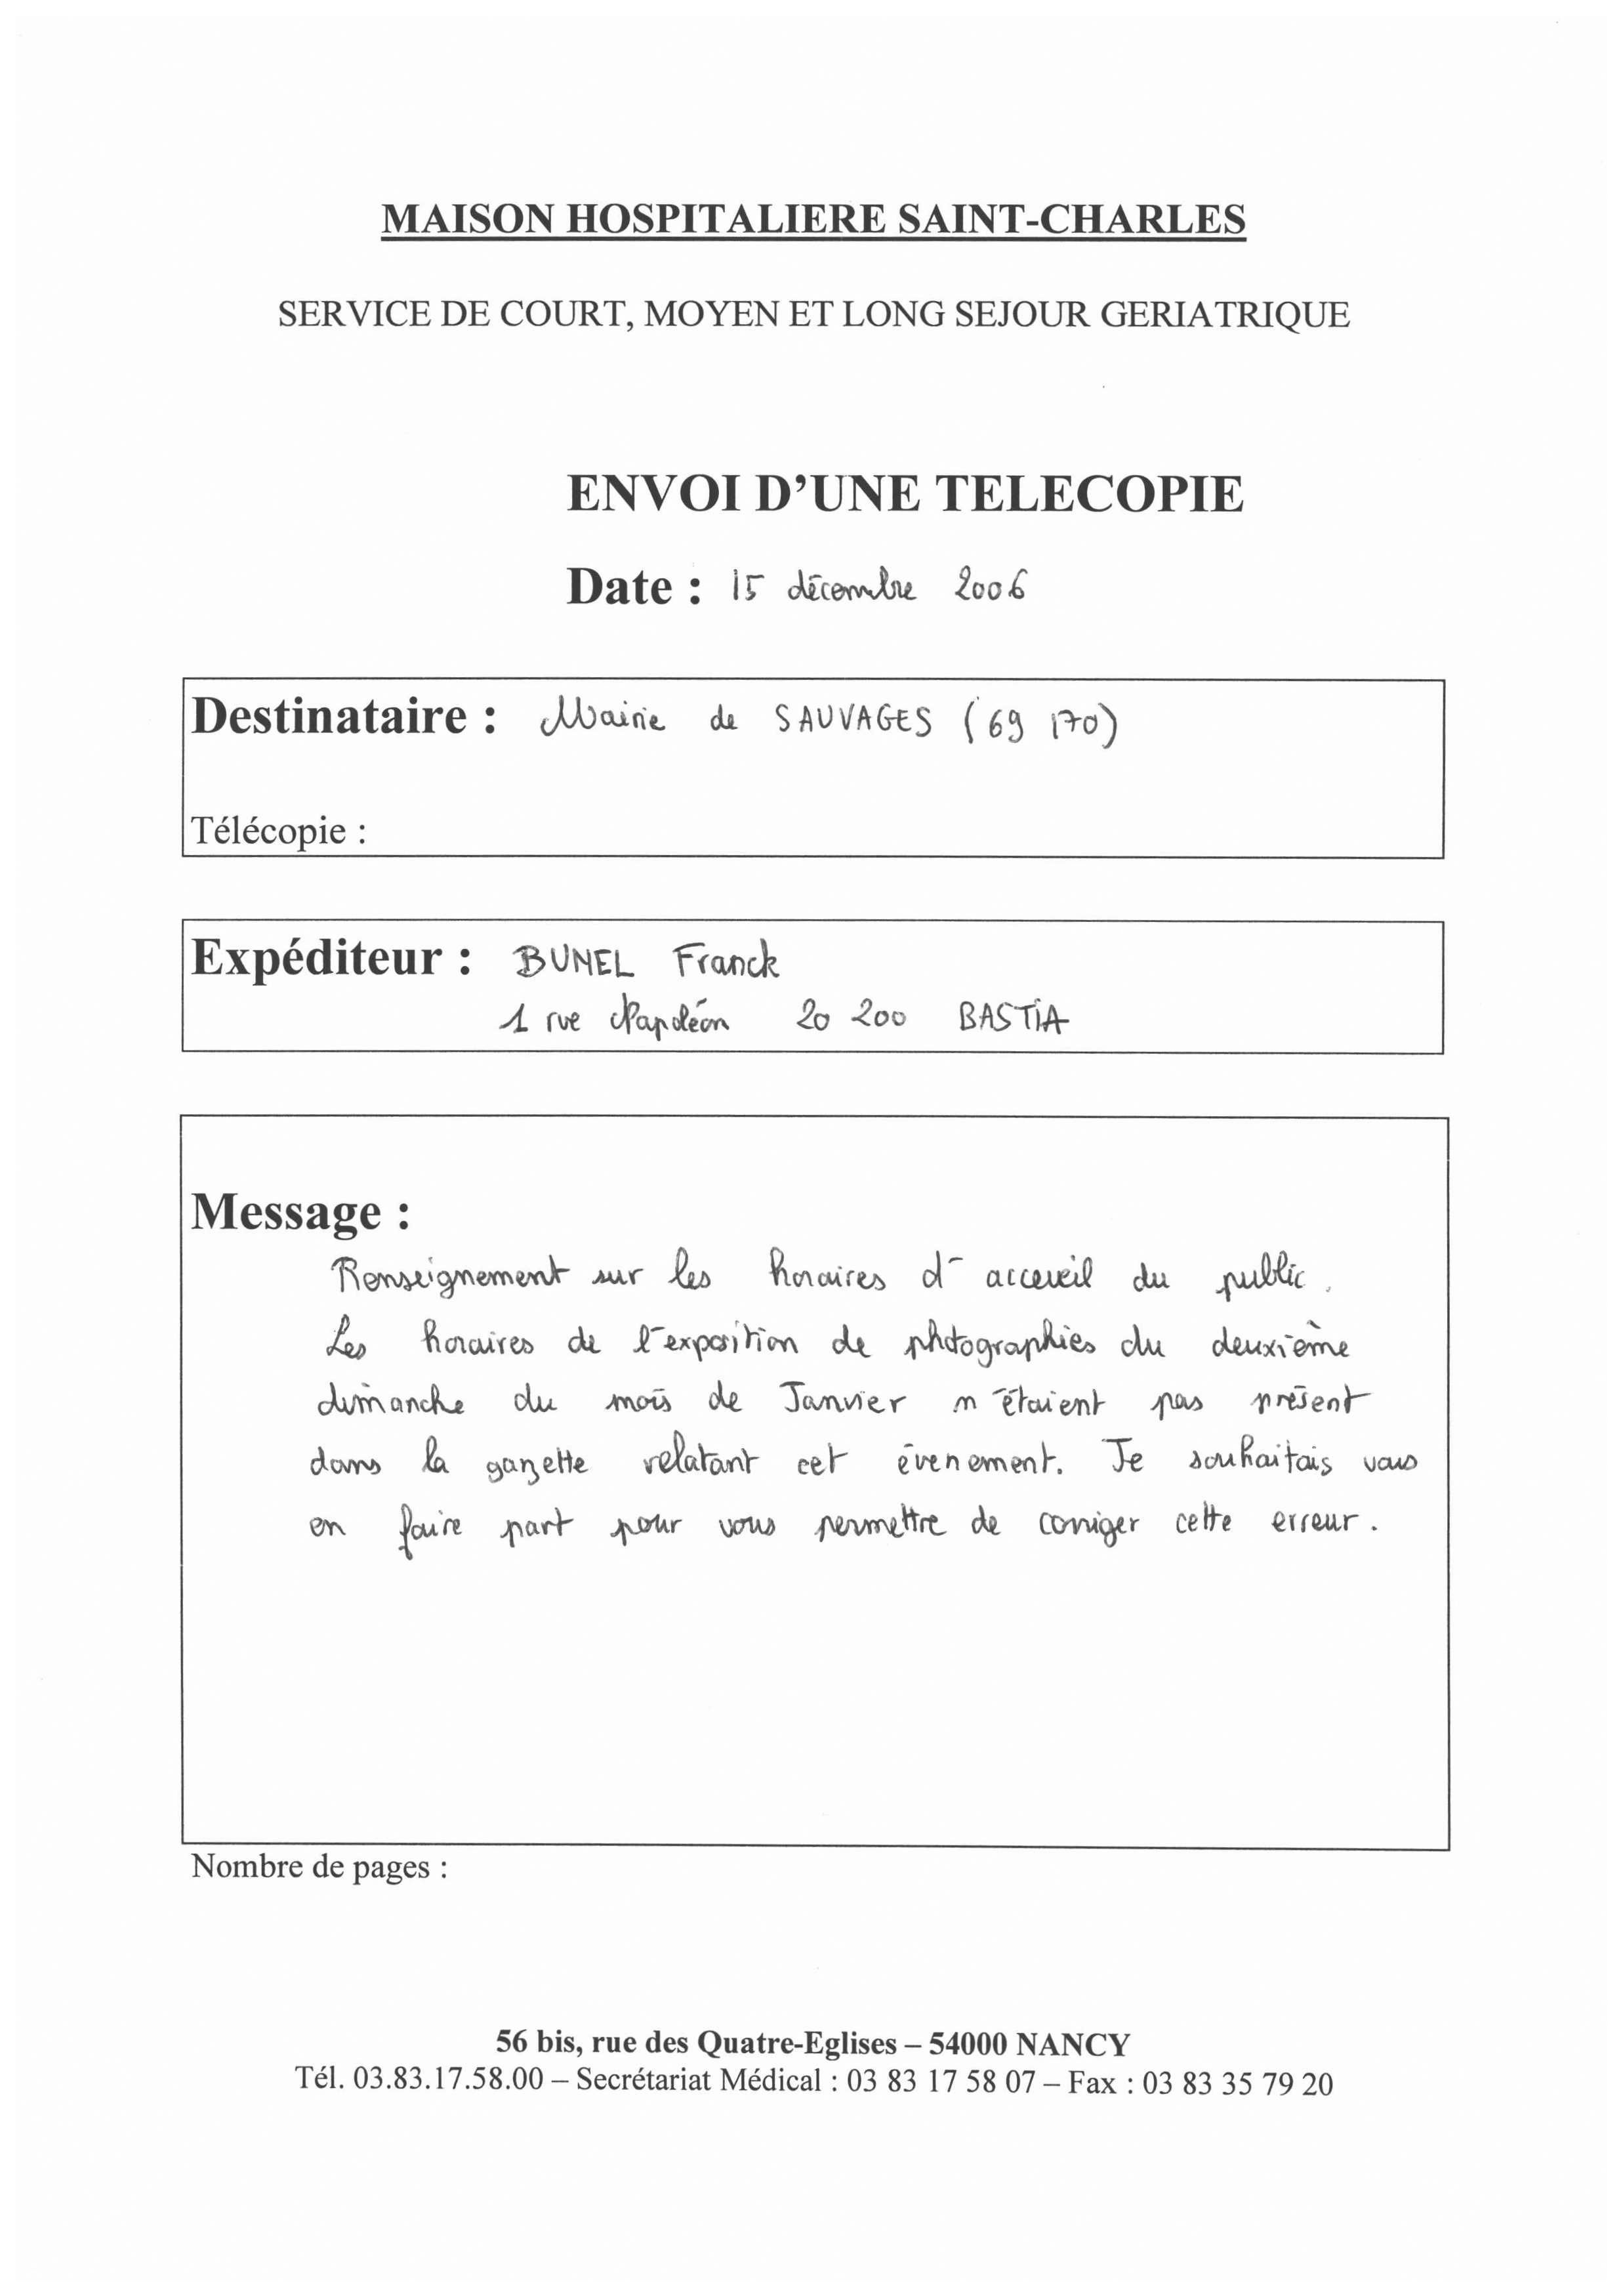 MAISON HOSPITALIERE SAINT-CHARLES
SERVICE DE COURT, MOYEN ET LONG SEJOUR GERIATRIQUE
ENVOI D'UNE TELECOPIE
Date : 15 décembre 2006
Destinataire : Mairie de SAUVAGES (69 170)
Télécopie :
Expéditeur : BUNEL Franck
1 rue Napoléon 20 200 BASTIA
Message :
Renseignement sur les horaires d'acceuil du public.
Les horaires de l'exposition de photographies du deuxième
dimanche du mois de Janvier n'étaient pas présent
dans la gazette relatant cet évenement. Je souhaitais vous
en faire part pour vous permettre de corriger cette erreur.
Nombre de pages :
56 bis, rue des Quatre-Eglises – 54000 NANCY
Tél. 03.83.17.58.00 – Secrétariat Médical : 03 83 17 58 07 – Fax : 03 83 35 79 20